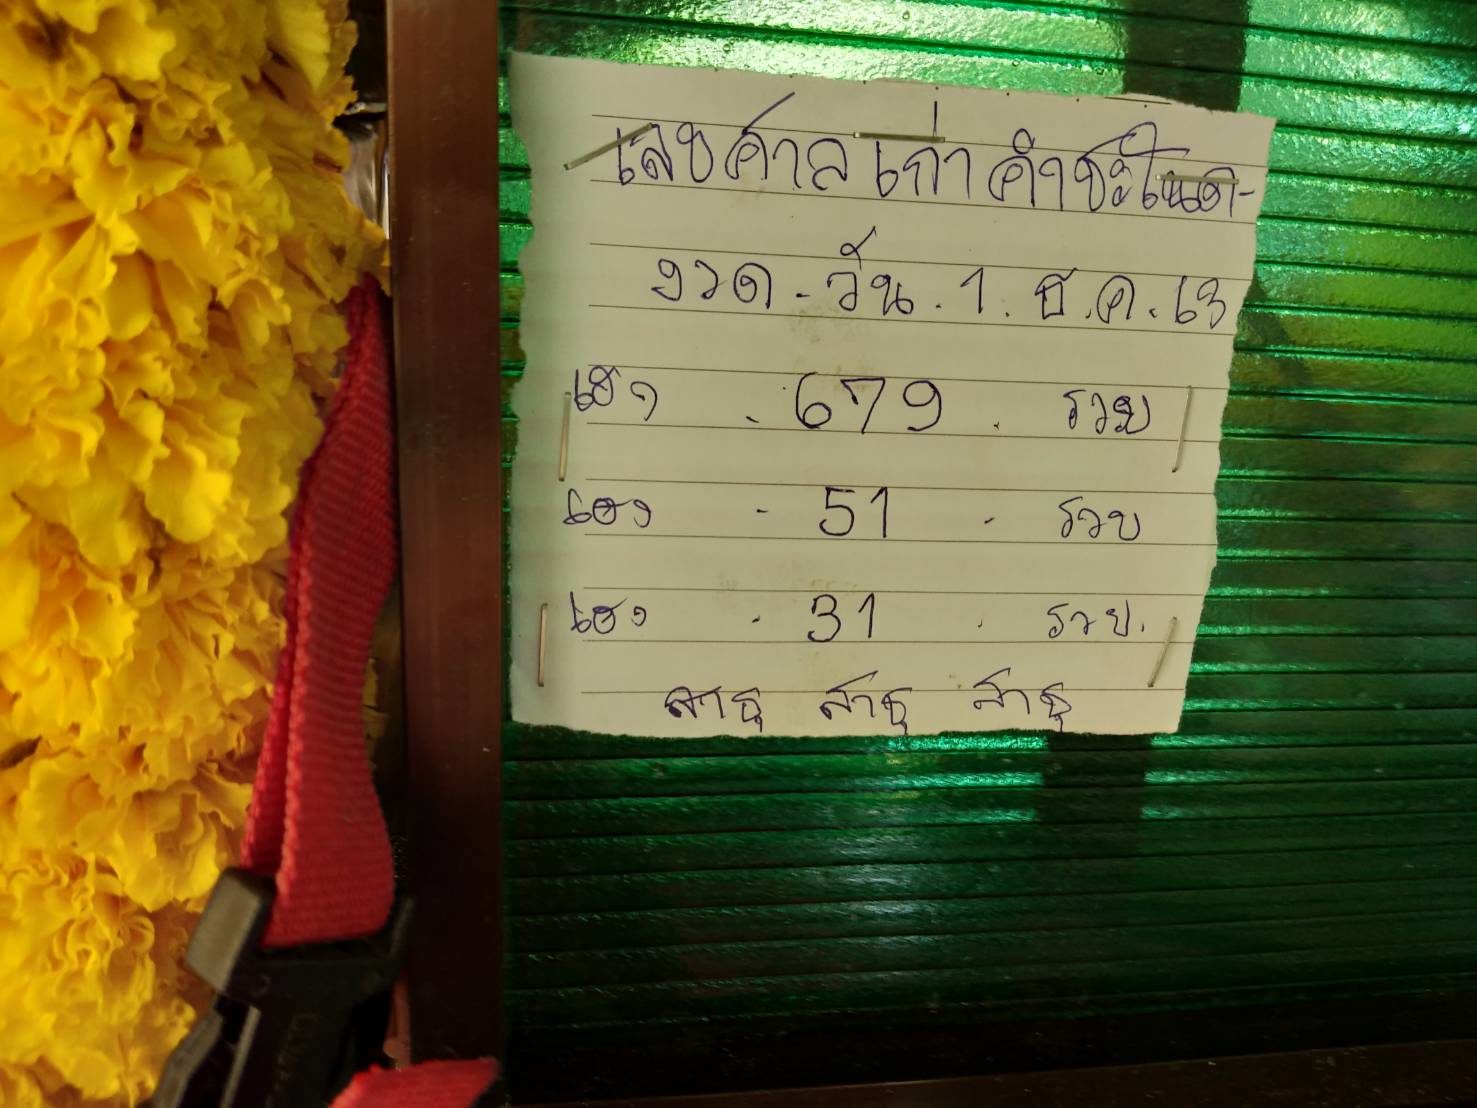 เลขศาลเก่าคำชะโนด
งวด - วัน . 1 . ธ . ค . 63
เฮง . 679 . รวย
เฮง - 51 - รวย
เฮง . 31 . รวย .
สาธุ สาธุ สาธุ